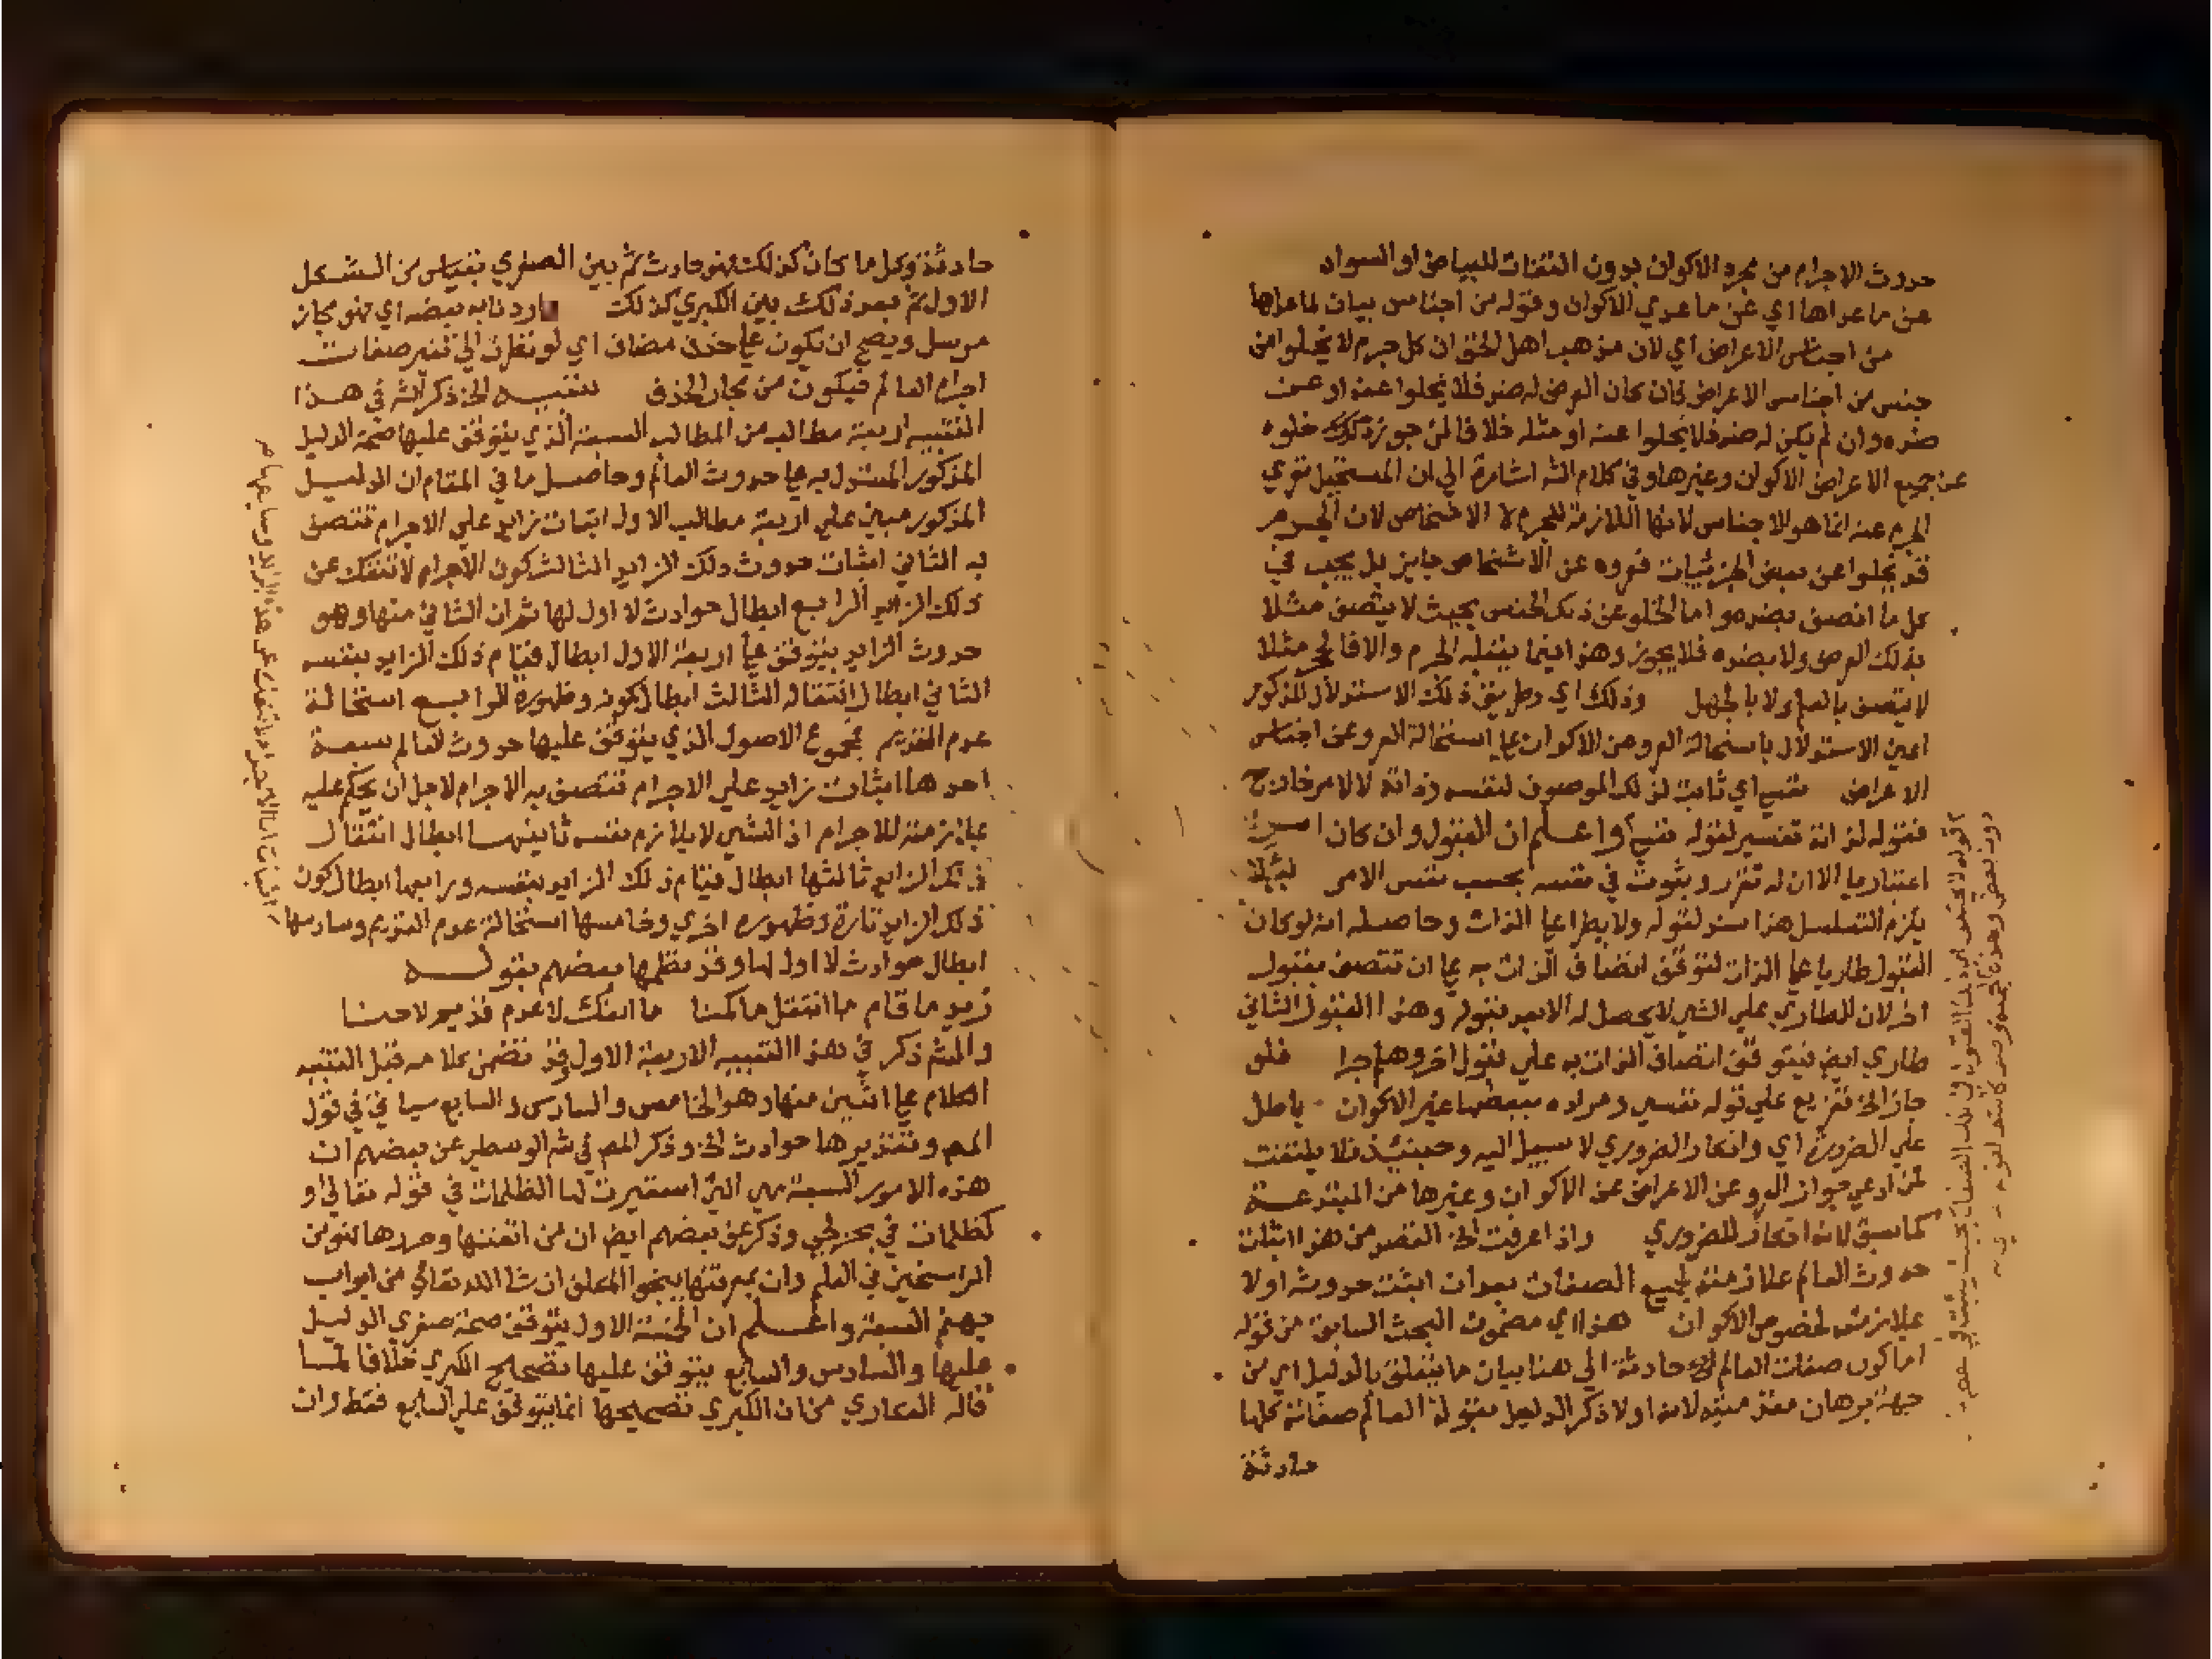 حدوث الاجرام من مجرد الاكوان بدون التفات للبياض او السواد
عن ما عداها اي عن ما عدي الاكوان وقوله من اجناس بيان لما عداها
من اجناس الاعراض اي لان مذهب اهل الحق ان كل جرم لا يخلوا من
جنس من اجناس الاعراض فان كان العرض له ضد فلا يخلوا عنه او عن
ضده وان لم يكن له ضد فلا يخلوا عنه او مثله خلافا لمن جوز ذلك خلوه
عن جميع الاعراض الاكوان وغيرها وفي كلام الش اشارة الي ان المستحيل تعري
الجرم عنه انما هو الاجناس لانها اللازمة للجرم لا الاشخاص لان الجرم
قد يخلوا عن بعض الجزئيات فعروه عن الاشخاص جايز بل يجب في
كل ما اتصف بضده واما الخلو عن ذلك الجنس بحيث لا يتصف مثلا
بذلك العرض ولا بضده فلا يجوز وهذا فيما يقبله الجرم والا فالحجر مثلا
لا يتصف بالعلم ولا بالجهل وذلك اي وطريق ذلك الاستدلال المذكور
اعني الاستدلال باستحالة العرو عن الاكوان علي استحالة العرو عن اجناس
الاعراض نفسي اي ثابتة لذلك الموصوف لنفسه وذاته لا لامر خارج
فقوله لذاته تفسير لقوله نفسي واعلم ان القبول وان كان امرا
اعتباريا الا ان له تقرر وثبوت في نفسه بحسب نفس الامر ليلا
يلزم التسلسل هذا سند لقوله ولا يطرا علي الذات وحاصله انه لو كان
القبول طاريا علي الذات لتوقف اتصاف الذات به علي ان تتصف بقبول
اخر لان الطاري علي الشي لا يحصل له الا بعد قبوله وهذا القبول الثاني
طاري ايض فيتوقف اتصاف الذات به علي قبول اخر وهلم جرا فلو
جاز الخ تفريع علي قوله نفسي ومراده ببعضها غير الاكوان باطل
علي الضرورة اي وانكار الضروري لا سبيل اليه وحينيذ فلا يلتفت
لمن ادعي جواز العرو عن الاعراض عن الاكوان وغيرها من المبتدعة
كما سبق لانه انكار للضروري واذا عرفت الخ القصد من هذا اثبات
حدوث العالم بملازمته لجميع الصفات بعد ان اثبت حدوثه اولا
بملازمته لخصوص الاكوان هذا اي مضمون البحث السابق من قوله
اما كون صفات العالم الخ حادثة الي هنا بيان ما يتعلق بالدليل اي من
جهة برهان مقدمتيه لانه اولا ذكر الدليل بقوله العالم صفاته كلها
حادثة
حادثة وكل ما كان كذلك فهو حادث ثم بين الصغري بقياس من الشكل
الاول ثم بعد ذلك بين الكبري كذلك اردنا به بعضه اي فهو مجاز
مرسل ويصح ان تكون علي حذف مضاف اي لو نظرت الي تغير صفات
اجرام العالم فيكون من مجاز الحذف تنبيه الخ ذكر الش في هذا
التنبيه اربعة مطالب من المطالب السبعة الذي يتوقف عليها صحة الدليل
المذكور المستدل به علي حدوث العالم وحاصل ما في المقام ان الدليل
المذكور مبين علي اربعة مطالب الاول اثبات زايد علي الاجرام تتصف
به الثاني اثبات حدوث ذلك الزايد الثالث كون الاجرام لا تنفك عن
ذلك الزايد الرابع ابطال حوادث لا اول لها ثم ان الثاني منها وهو
حدوث الزايد يتوقف علي اربعة الاول ابطال قيام ذلك الزايد بنفسه
الثاني ابطال انتقاله الثالث ابطال كمونه وظهوره الرابع استحالة
عدم القديم فمجموع الاصول الذي يتوقف عليها حدوث العالم سبعة
احدها اثبات زايد علي الاجرام تتصف به الاجرام لاجل ان يحكم عليه
بملازمته للاجرام اذ الشي لا يلازم نفسه ثانيها ابطال انتقال
ذلك الزايد ثالثها ابطال قيام ذلك الزايد بنفسه ورابعها ابطال كون
ذلك الزايد تارة وظهوره اخري وخامسها استحالة عدم القديم وسادسها
ابطال حوادث لا اول لها وقد نظمها بعضهم بقوله
زيد ما قام ما انتقل ما كمنا ما انفك لا عدم قديم لا حنا
والش ذكر في هذا التنبيه الاربعة الاول وقد تضمن كلامه قبل التنبيه
الكلام علي اثنين منها وهو الخامس والسادس والسابع سياتي في قول
المص وتقديرها حوادث الخ وذكر المص في ش الوسطي عن بعضهم ان
هذه الامور السبعة هي التي استعيرت لها الظلمات في قوله تعالي او
كظلمات في بحر لجي وذكر عن بعضهم ايض ان من اتقنها وحررها فهو من
الراسخين في العلم وان بمعرفتها ينجو المكلف ان شا الله تعالي من ابواب
جهنم السبعة واعلم ان الخمسة الاول يتوقف صحة صغري الدليل
عليها والسادس والسابع يتوقف عليها تصحيح الكبري خلافا لما
قاله العكاري من ان الكبري تصحيحها انما يتوقف علي السابع فقط وان